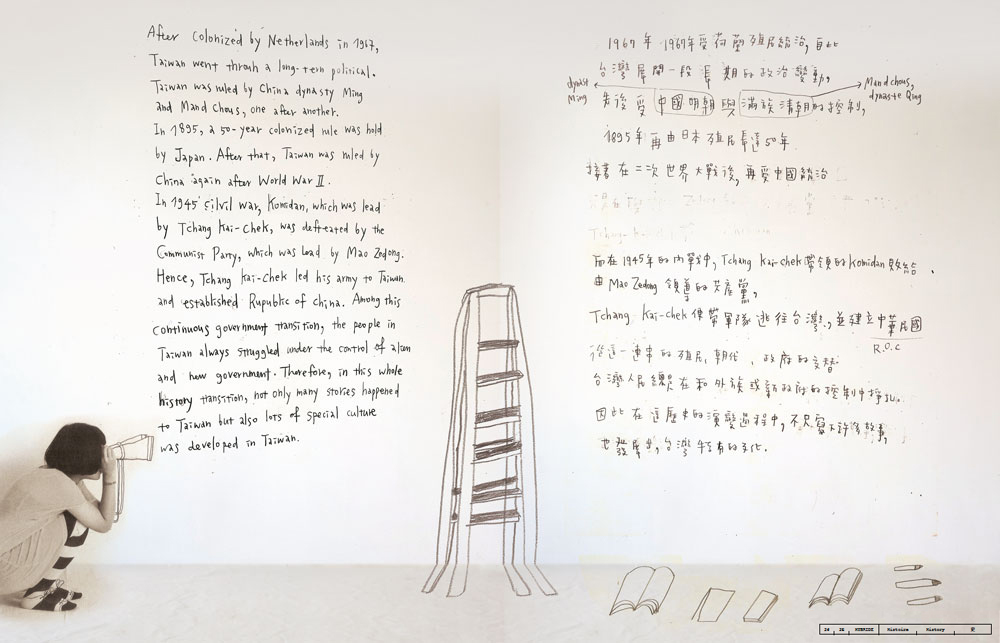 After colonized by Netherlands in 1967,
Taiwan went throuh a long-tern political.
Taiwan was ruled by China dynasty Ming
and Mand Chous, one after another.
In 1895, a 50-year colonized rule was hold
by Japan. After that, Taiwan was ruled by
China again after World War II.
In 1945 cilvil war, Komidan, which was lead
by Tchang Kai-Chek, was defreated by the
Communist Party, which was lead by Mao Zedong.
Hence, Tchang Kai-Chek led his army to Taiwan
and established Rupublic of china. Among this
continuous government transition, the people in
Taiwan always struggled under the control of
and new government. Therefore, in this whole
history transition, not only many stories happened
to Taiwan but also lots of special culture
was developed in Taiwan.
1967年-1967年受荷蘭殖民統治,自此
台灣展開一段長期的政治變動,
dynast
Ming
先後受中國明朝與滿族清朝的控制,
Mandchous,
dynaste Qing
1895年再由日本殖民長達50年
接著在二次世界大戰後,再受中國統治
而在1945年的內戰中,Tchang Kai-chek帶領的Komidan敗給
由Mao Zedong領導的共產黨,
Tchang Kai-chek 軍隊逃往台灣,並建立中華民國
R.O.C
從這一連串的殖民、朝代、政府的交替
台灣人民總是在和外族或新政府的控制中掙扎.
因此在這歷史的演變過程中,不只 許多故事,
也發展出,台灣特有的文化.
HYBRIDE Histoire History 史